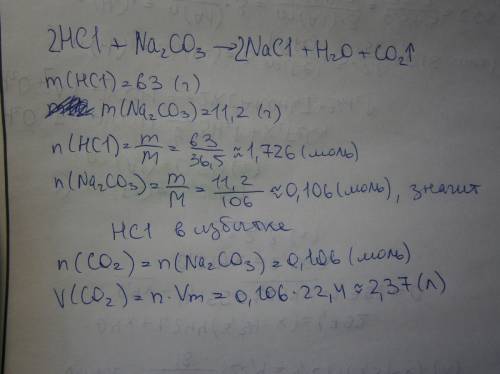 2HCl + Na₂CO₃ → 2NaCl + H₂O + CO₂↑
m(HCl) = 63 (г)
m(Na₂CO₃) = 11,2 (г)
n(HCl) = m/M = 63/36,5 ≈ 1,726 (моль)
n(Na₂CO₃) = m/M = 11,2/106 ≈ 0,106 (моль), значит
HCl в избытке
n(CO₂) = n(Na₂CO₃) = 0,106 (моль)
V(CO₂) = n · Vm = 0,106 · 22,4 ≈ 2,37 (л)